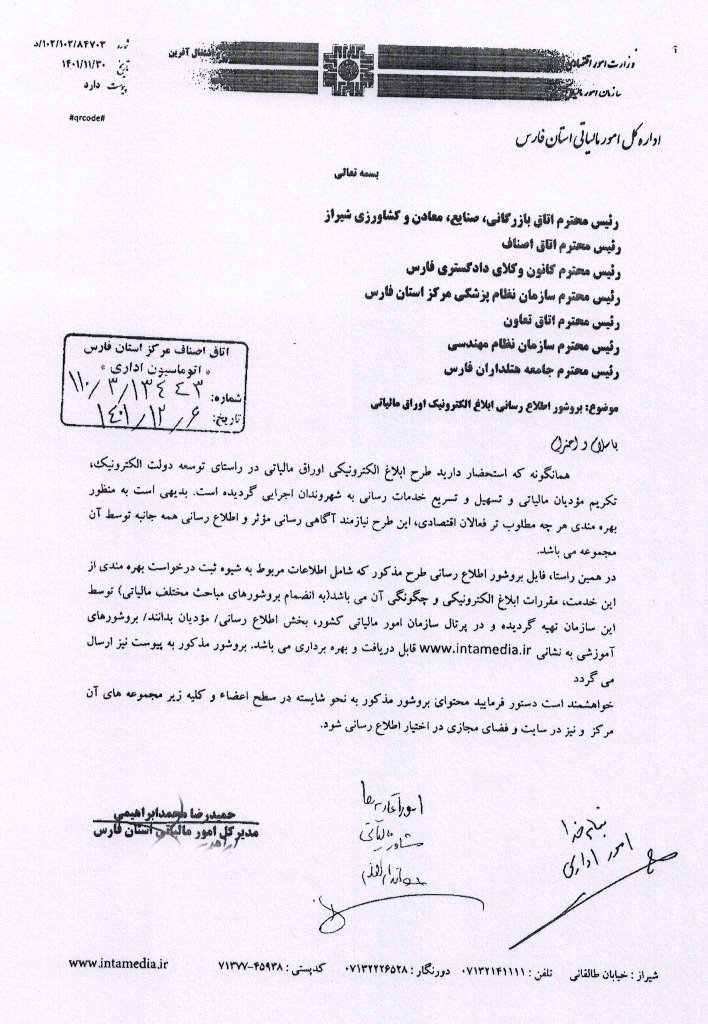 شماره ۱۰۲/۱۰۲/۸۴۷۰۳/د
تاریخ ۱۴۰۱/۱۱/۳۰
پیوست دارد
#qrcode#
وزارت امور اقتصادی
سازمان امور مالیاتی
اشتغال آفرین
اداره کل امور مالیاتی استان فارس
بسمه تعالی
رئیس محترم اتاق بازرگانی، صنایع، معادن و کشاورزی شیراز
رئیس محترم اتاق اصناف
رئیس محترم کانون وکلای دادگستری فارس
رئیس محترم سازمان نظام پزشکی مرکز استان فارس
رئیس محترم اتاق تعاون
رئیس محترم سازمان نظام مهندسی
رئیس محترم جامعه هتلداران فارس
اتاق اصناف مرکز استان فارس
« اتوماسیون اداری »
شماره: ۱۱۰/۳/۱۳۴۴۳
تاریخ: ۱۴۰۱/۱۲/۶
موضوع: بروشور اطلاع رسانی ابلاغ الکترونیک اوراق مالیاتی
با سلام و احترام
همانگونه که استحضار دارید طرح ابلاغ الکترونیکی اوراق مالیاتی در راستای توسعه دولت الکترونیک،
تکریم مؤدیان مالیاتی و تسهیل و تسریع خدمات رسانی به شهروندان اجرایی گردیده است. بدیهی است به منظور
بهره مندی هر چه مطلوب تر فعالان اقتصادی، این طرح نیازمند آگاهی رسانی مؤثر و اطلاع رسانی همه جانبه توسط آن
مجموعه می باشد.
در همین راستا، فایل بروشور اطلاع رسانی طرح مذکور که شامل اطلاعات مربوط به شیوه ثبت درخواست بهره مندی از
این خدمت، مقررات ابلاغ الکترونیکی و چگونگی آن می باشد(به انضمام بروشورهای مباحث مختلف مالیاتی) توسط
این سازمان تهیه گردیده و در پرتال سازمان امور مالیاتی کشور، بخش اطلاع رسانی/ مؤدیان بدانند/ بروشورهای
آموزشی به نشانی www.intamedia.ir قابل دریافت و بهره برداری می باشد. بروشور مذکور به پیوست نیز ارسال
می گردد
خواهشمند است دستور فرمایید محتوای بروشور مذکور به نحو شایسته در سطح اعضاء و کلیه زیر مجموعه های آن
مرکز و نیز در سایت و فضای مجازی در اختیار اطلاع رسانی شود.
حمیدرضا محمدابراهیمی
مدیرکل امور مالیاتی استان فارس
مشاور مالیاتی
بنام خدا
امور اداری
شیراز : خیابان طالقانی تلفن : ۰۷۱۳۲۱۴۱۱۱۱ دورنگار : ۰۷۱۳۲۲۲۶۵۲۸ کدپستی : ۴۵۹۳۸-۷۱۳۷۷ www.intamedia.ir